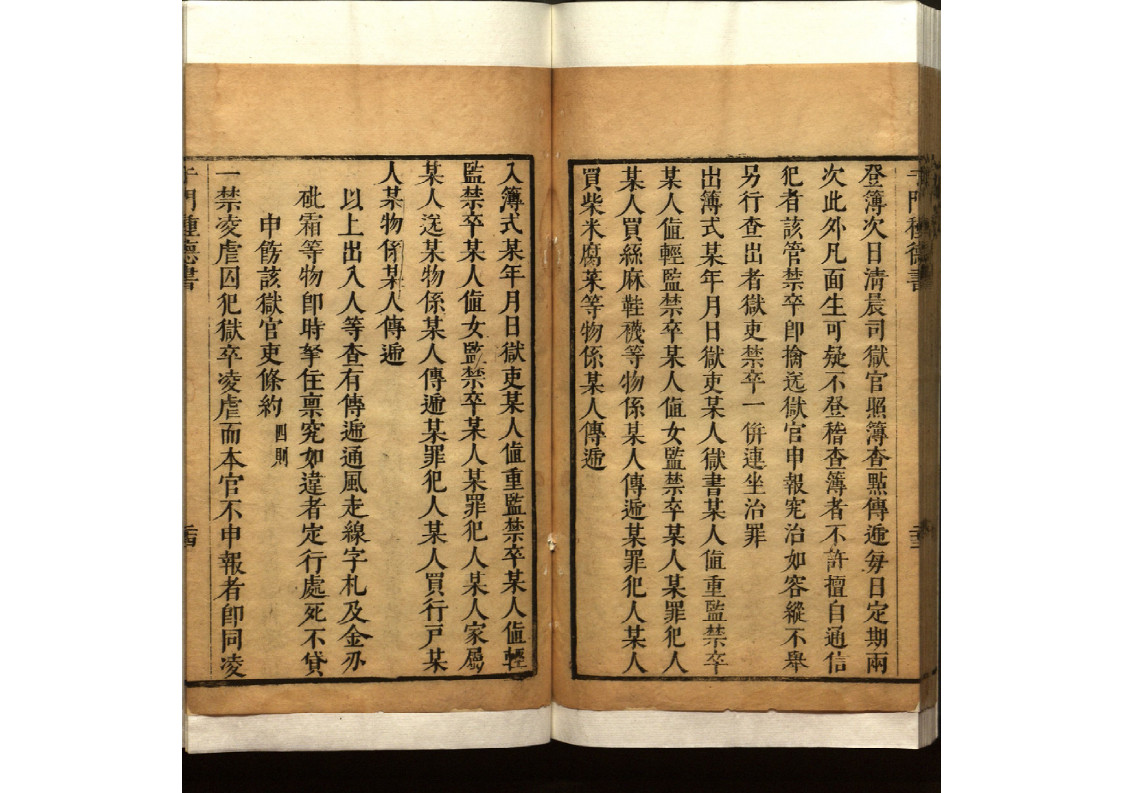 登簿次日淸晨司獄官照簿查點傳遞每日定期兩
次此外凡面生可疑不登稽查簿者不許擅自通信
犯者該管禁卒卽擒送獄官申報究治如容縱不舉
另行查出者獄吏禁卒一併連坐治罪
出簿式某年月日獄吏某人獄書某人値重監禁卒
某人値輕監禁卒某人値女監禁卒某人某罪犯人
某人買絲麻鞋襪等物係某人傳遞某罪犯人某人
買柴米腐菜等物係某人傳遞
入簿式某年月日獄吏某人値重監禁卒某人値輕
監禁卒某人値女監禁卒某人某罪犯人某人家屬
某人送某物係某人傳遞某罪犯人某人買行戸某
人某物係某人傳遞
以上出入人等查有傳遞通風走線字札及金刃
砒霜等物卽時拏住禀究如違者定行處死不貸
申飭該獄官吏條約四則
一禁凌虐囚犯獄卒凌虐而本官不申報者卽同凌
門種德書